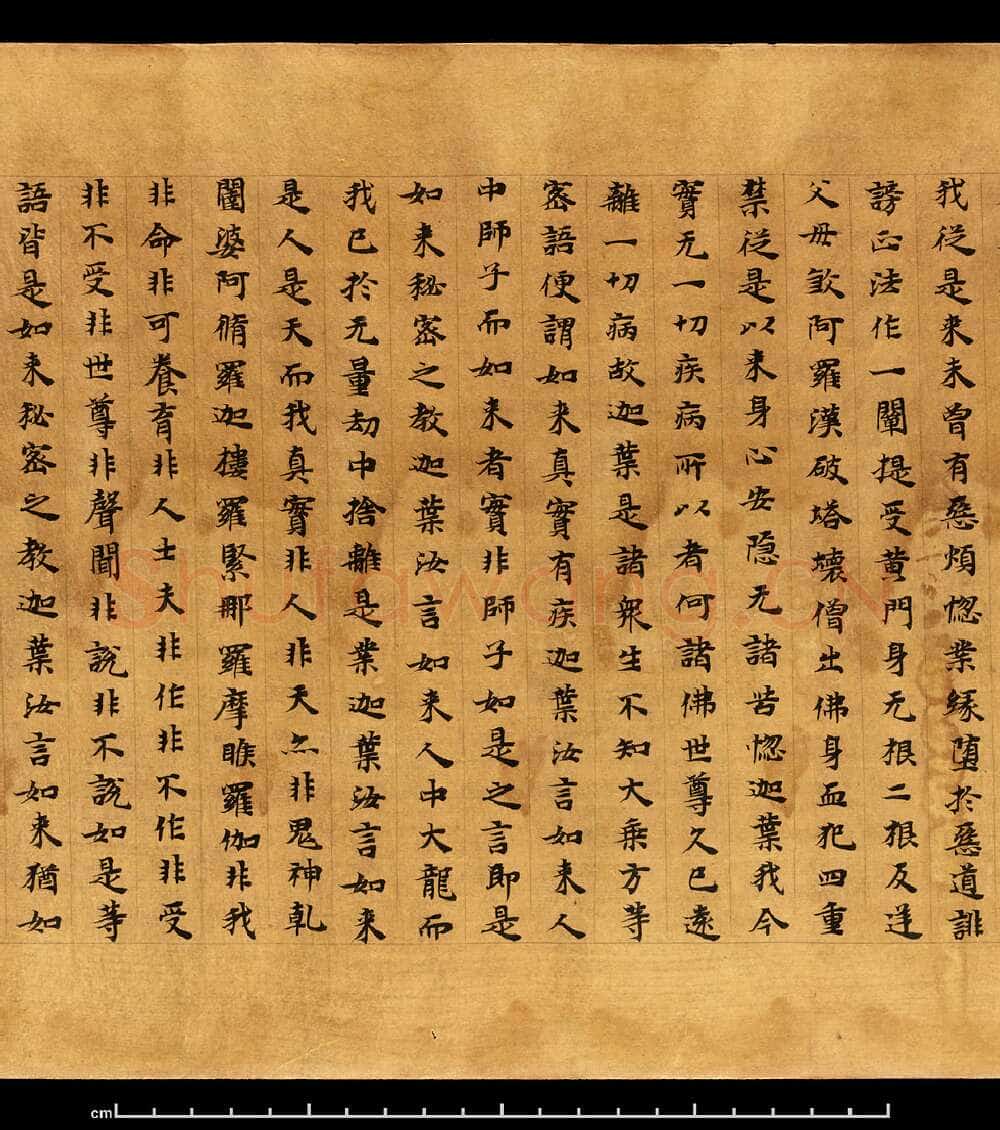 我從是来未曾有惡煩惚業緣墮於惡道誹
謗正法作一闡提受黄門身无根二根及逆
父母煞阿羅漢破塔壞僧出佛身血犯四重
禁從是以来身心安隐无諸苦惚迦葉我今
實无一切疾病所以者何諸佛世尊久已遠
離一切病故迦葉是諸衆生不知大乘方等
密語便謂如来真實有疾迦葉汝言如来人
中師子而如来者實非師子如是之言即是
如来秘密之教迦葉汝言如来人中大龍而
我已於无量劫中捨離是業迦葉汝言如来
是人是天而我真實非人非天亦非鬼神乹
闥婆阿脩羅迦樓羅緊那羅摩睺羅伽非我
非命非可養育非人士夫非作非不作非受
非不受非世尊非聲聞非說非不說如是等
語皆是如来秘密之教迦葉汝言如来猶如
Shufawang.CN
cm